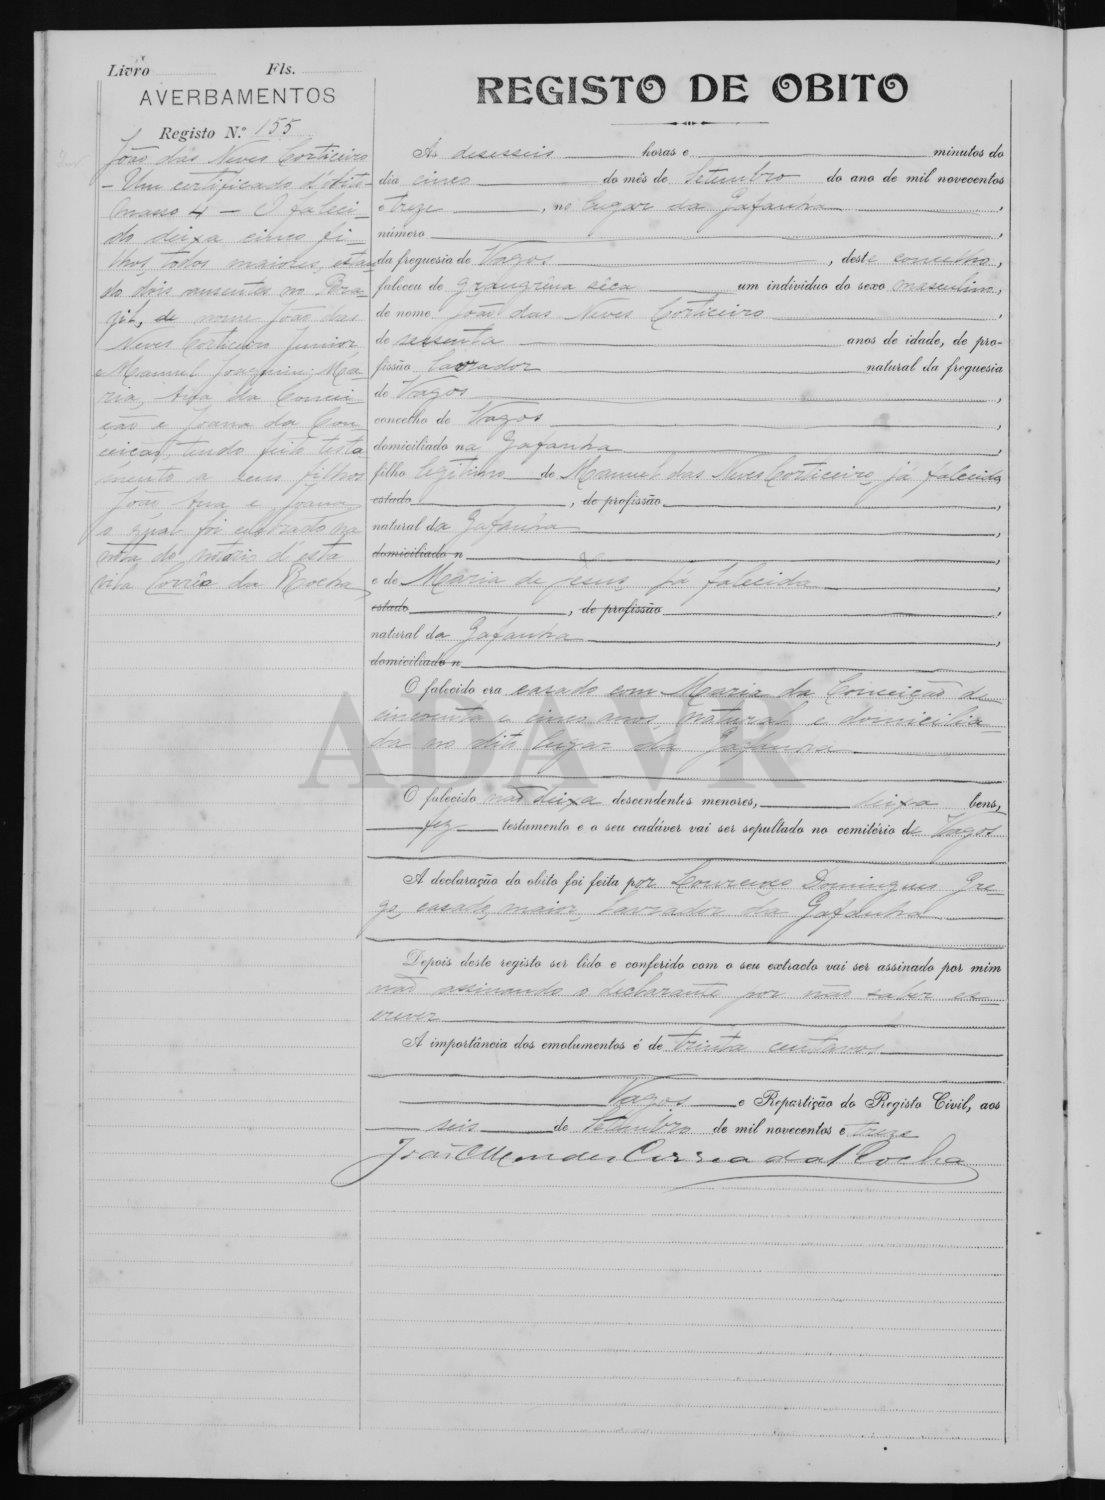 Livro Fls.
AVERBAMENTOS
Registo N.º 155
João das Neves Corticeiro
– Um certificado d'obito
masso 4 – O faleci-
do deixa cinco fi-
lhos, todos maiores, estan-
do dois ausentes no Bra-
zil, de nome João das
Neves Corticeiro Junior,
e Manuel Joaquim; Ma-
ria, Ana da Concei-
ção e Joana da Con
ceição, tendo feito testa
mento a seus filhos
João, Ana e Joana
o qual foi na
nota do notario d'esta
vila Corrêa da Rocha
REGISTO DE OBITO
Ás desesseis horas e minutos do
dia cinco do mês de Setembro do ano de mil novecentos
e treze, no lugar da Gafanha,
número ,
da freguesia de Vagos, deste concelho,
faleceu de grangrena sêca um individuo do sexo masculino,
de nome João das Neves Corticeiro,
de sessenta anos de idade, de pro-
fissão lavrador natural da freguesia
de Vagos,
concelho de Vagos,
domiciliado na Gafanha,
filho legitimo de Manuel das Neves Corticeiro, já falecido
estado , de profissão ,
natural da Gafanha,
domiciliado n ,
e de Maria de Jesus, já falecida,
estado , de profissão ,
natural da Gafanha,
domiciliado n
O falecido era casado com Maria da Conceição de
cincoenta e cinco anos, natural e domicilia-
da no dito lugar da Gafanha
O falecido não deixa descendentes menores, deixa bens,
fez testamento e o seu cadáver vai ser sepultado no cemitério de Vagos
A declaração do obito foi feita por Lourenço Domingues Gre-
go, casado, maior, lavrador da Gafanha
Depois deste registo ser lido e conferido com o seu extracto vai ser assinado por mim
não assinando o declarante por não saber es-
crever
A importância dos emolumentos é de trinta centavos
Vagos e Repartição do Registo Civil, aos
seis de Setembro de mil novecentos e treze
João Mendes Correa da Rocha
ADAVR